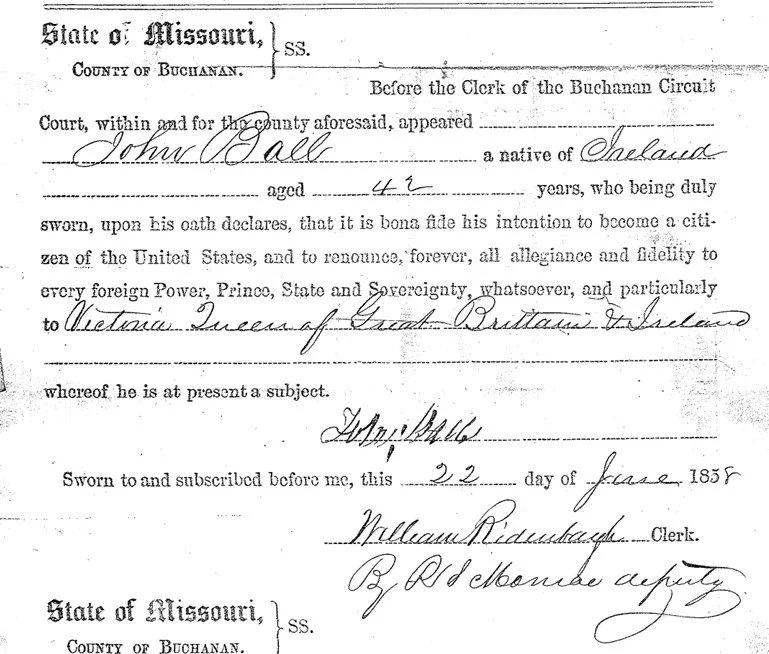 State of Missouri,
COUNTY OF BUCHANAN. } SS.
Before the Clerk of the Buchanan Circuit
Court, within and for the county aforesaid, appeared
John Ball a native of Ireland
aged 42 years, who being duly
sworn, upon his oath declares, that it is bona fide his intention to become a citi-
zen of the United States, and to renounce, forever, all allegiance and fidelity to
every foreign Power, Prince, State and Sovereignty, whatsoever, and particularly
to Victoria Queen of Great Brittain & Ireland
whereof he is at present a subject.
John Ball
Sworn to and subscribed before me, this 22 day of June 1858
William Ridenbaugh Clerk.
By R Monroe deputy
State of Missouri,
COUNTY OF BUCHANAN. } SS.